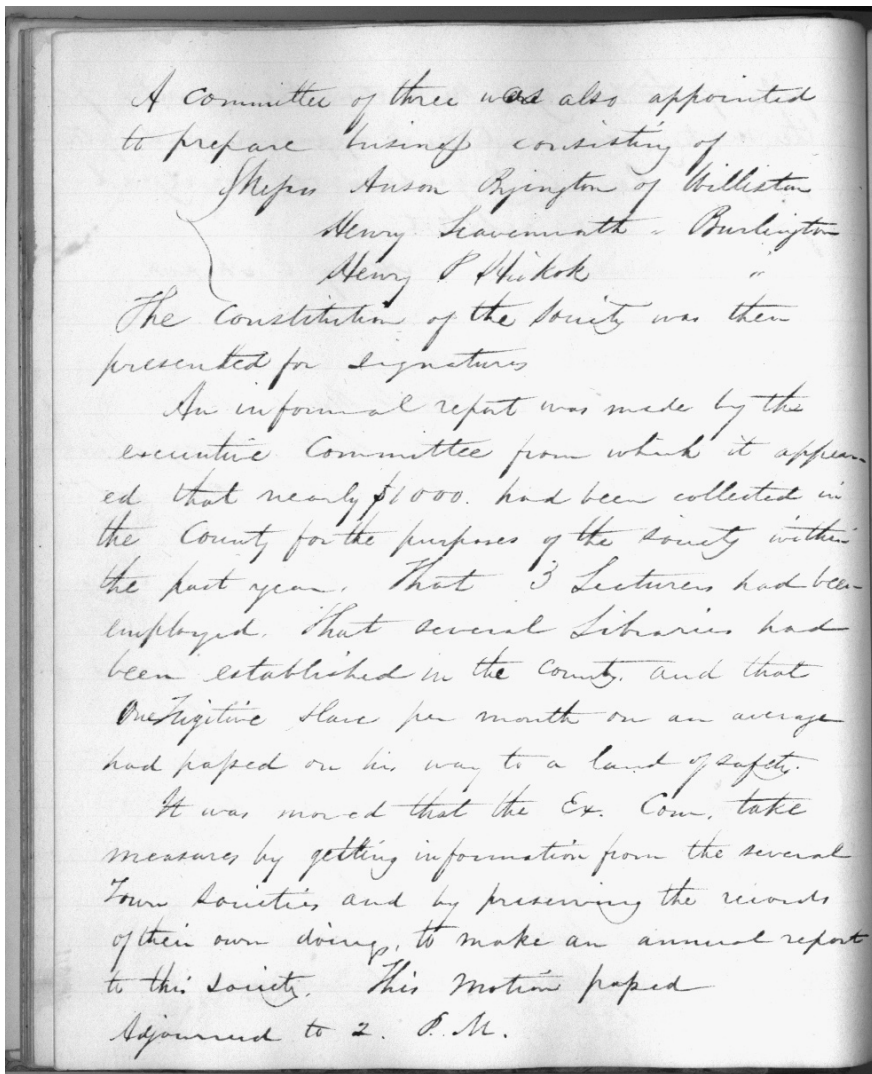 A Committee of three was also appointed
to prepare business consisting of
Messrs Anson Byington of Williston
Henry Leavenworth " Burlington
Henry P Hickok "
The Constitution of the Society was then
presented for signatures
An informal report was made by the
executive Committee from which it appear-
ed that nearly $1000. had been collected in
the County for the purposes of the society within
the past year. That 3 Lecturers had been
employed. That several Libraries had
been established in the County. and that
One Fugitive slave per month on an average
had passed on his way to a land of safety.
It was moved that the Ex. Com. take
measures by getting information from the several
Town Societies and by preserving the records
of their own doings, to make an annual report
to this Society. This Motion passed
Adjourned to 2. P. M.